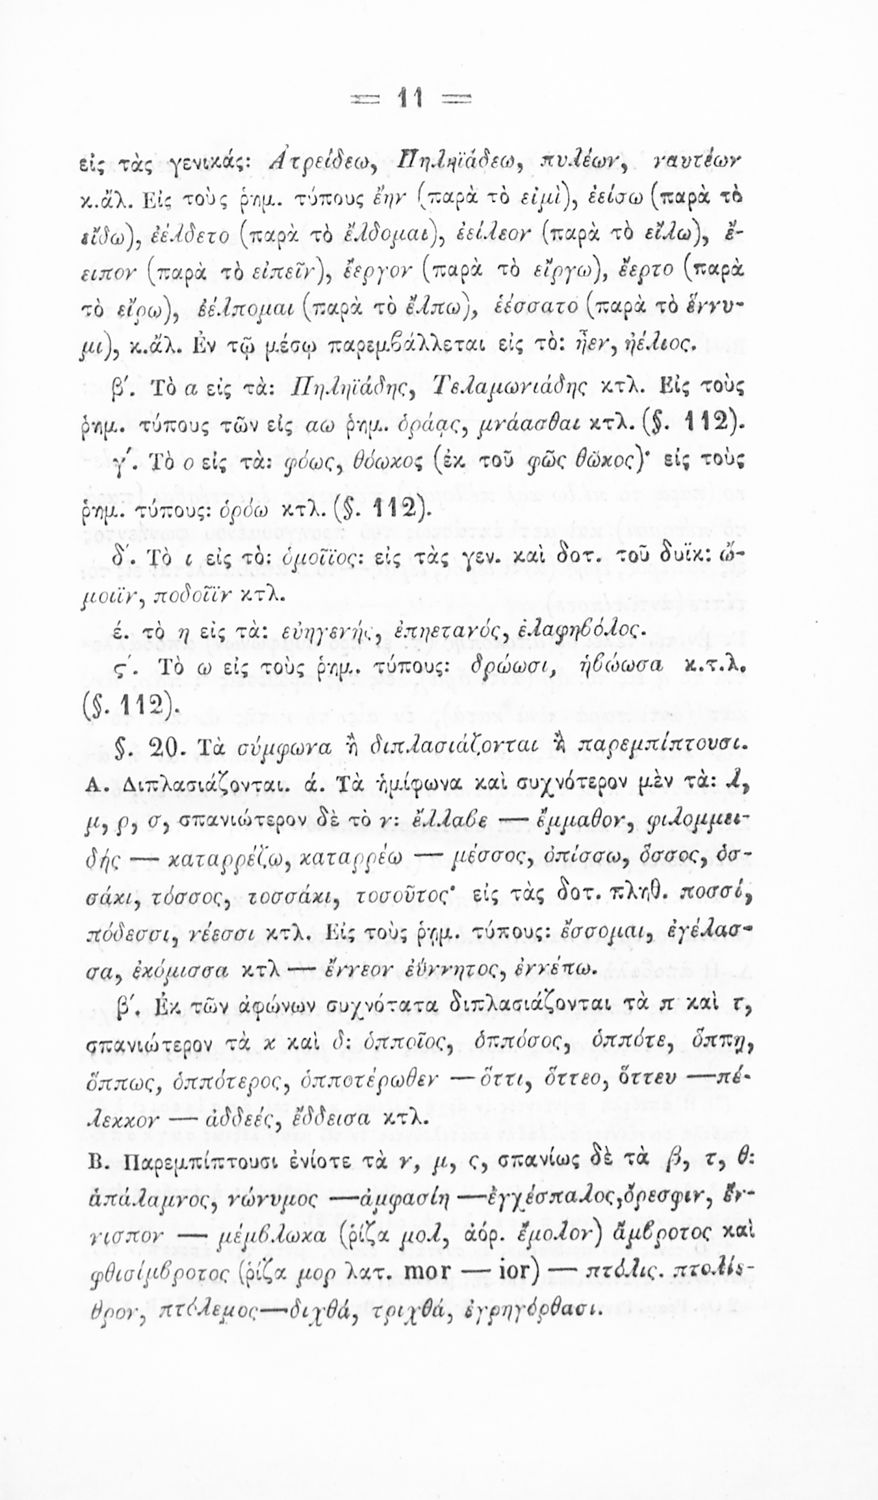 == 11 ==
εἰς τὰς γενικάς: Ἀτρείδεω, Πηληϊάδεω, πυλέων, ναυτέων
κ.ἄλ. Εἰς τοὺς ῥημ. τύπους ἔην (παρὰ τὸ εἰμὶ), ἐείσω (παρὰ τὸ
εἴδω), ἐέλδετο (παρὰ τὸ ἔλδομαι), ἐείλεον (παρὰ τὸ εἴλω), ἔ-
ειπον (παρὰ τὸ εἰπεῖν), ἔεργον (παρὰ τὸ εἴργω), ἔερτο (παρὰ
τὸ εἴρω), ἐέλπομαι (παρὰ τὸ ἔλπω), ἑέσσατο (παρὰ τὸ ἕννυ-
μι), κ.ἄλ. Ἐν τῷ μέσῳ παρεμβάλλεται εἰς τὸ: ἦεν, ἠέλιος.
β΄. Τὸ α εἰς τὰ: Πηληϊάδης, Τελαμωνιάδης κτλ. Εἰς τοὺς
ῥημ. τύπους τῶν εἰς αω ῥημ. ὁράᾳς, μνάασθαι κτλ. (§. 112).
γ΄. Τὸ ο εἰς τὰ: φόως, θόωκος (ἐκ τοῦ φῶς θῶκος)· εἰς τοὺς
ῥημ. τύπους: ὁρόω κτλ. (§. 112).
δ΄. Τὸ ι εἰς τὸ: ὁμοίϊος: εἰς τὰς γεν. καὶ δοτ. τοῦ δυϊκ: ὤ-
μοιϊν, ποδοῖϊν κτλ.
έ. τὸ η εἰς τὰ: εὐηγενής, ἐπηετανός, ἐλαφηβόλος.
ς΄. Τὸ ω εἰς τοὺς ῥημ. τύπους: δρώωσι, ἡβώωσα κ.τ.λ.
(§. 112).
§. 20. Τὰ σύμφωνα ἢ διπλασιάζονται ἢ παρεμπίπτουσι.
Α. Διπλασιάζονται. ά. Τὰ ἡμίφωνα καὶ συχνότερον μὲν τὰ: λ,
μ, ρ, σ, σπανιώτερον δὲ τὸ ν: ἔλλαβε — ἔμμαθον, φιλομμει-
δής — καταρρέζω, καταρρέω — μέσσος, ὀπίσσω, ὅσσος, ὁσ-
σάκι, τόσσος, τοσσάκι, τοσοῦτος· εἰς τὰς δοτ. πληθ. ποσσί,
πόδεσσι, νέεσσι κτλ. Εἰς τοὺς ῥημ. τύπους: ἔσσομαι, ἐγέλασ-
σα, ἐκόμισσα κτλ — ἔννεον ἐΰννητος, ἐννέπω.
β΄. Ἐκ τῶν ἀφώνων συχνότατα διπλασιάζονται τὰ π καὶ τ,
σπανιώτερον τὰ κ καὶ δ: ὁπποῖος, ὁππόσος, ὁππότε, ὅππῃ,
ὅππως, ὁππότερος, ὁπποτέρωθεν — ὅττι, ὅττεο, ὅττευ — πέ-
λεκκον — ἀδδεές, ἔδδεισα κτλ.
Β. Παρεμπίπτουσι ἐνίοτε τὰ ν, μ, ς, σπανίως δὲ τὰ β, τ, θ:
ἀπάλαμνος, νώνυμος — ἀμφασίη — ἐγχέσπαλος, ὄρεσφιν, ἔν-
νισπον — μέμβλωκα (ῥίζα μολ, ἀόρ. ἔμολον) ἄμβροτος καὶ
φθισίμβροτος (ῥίζα μορ λατ. mor — ior) — πτόλις. πτολίε-
θρον, πτόλεμος — διχθά, τριχθά, ἐγρηγόρθασι.